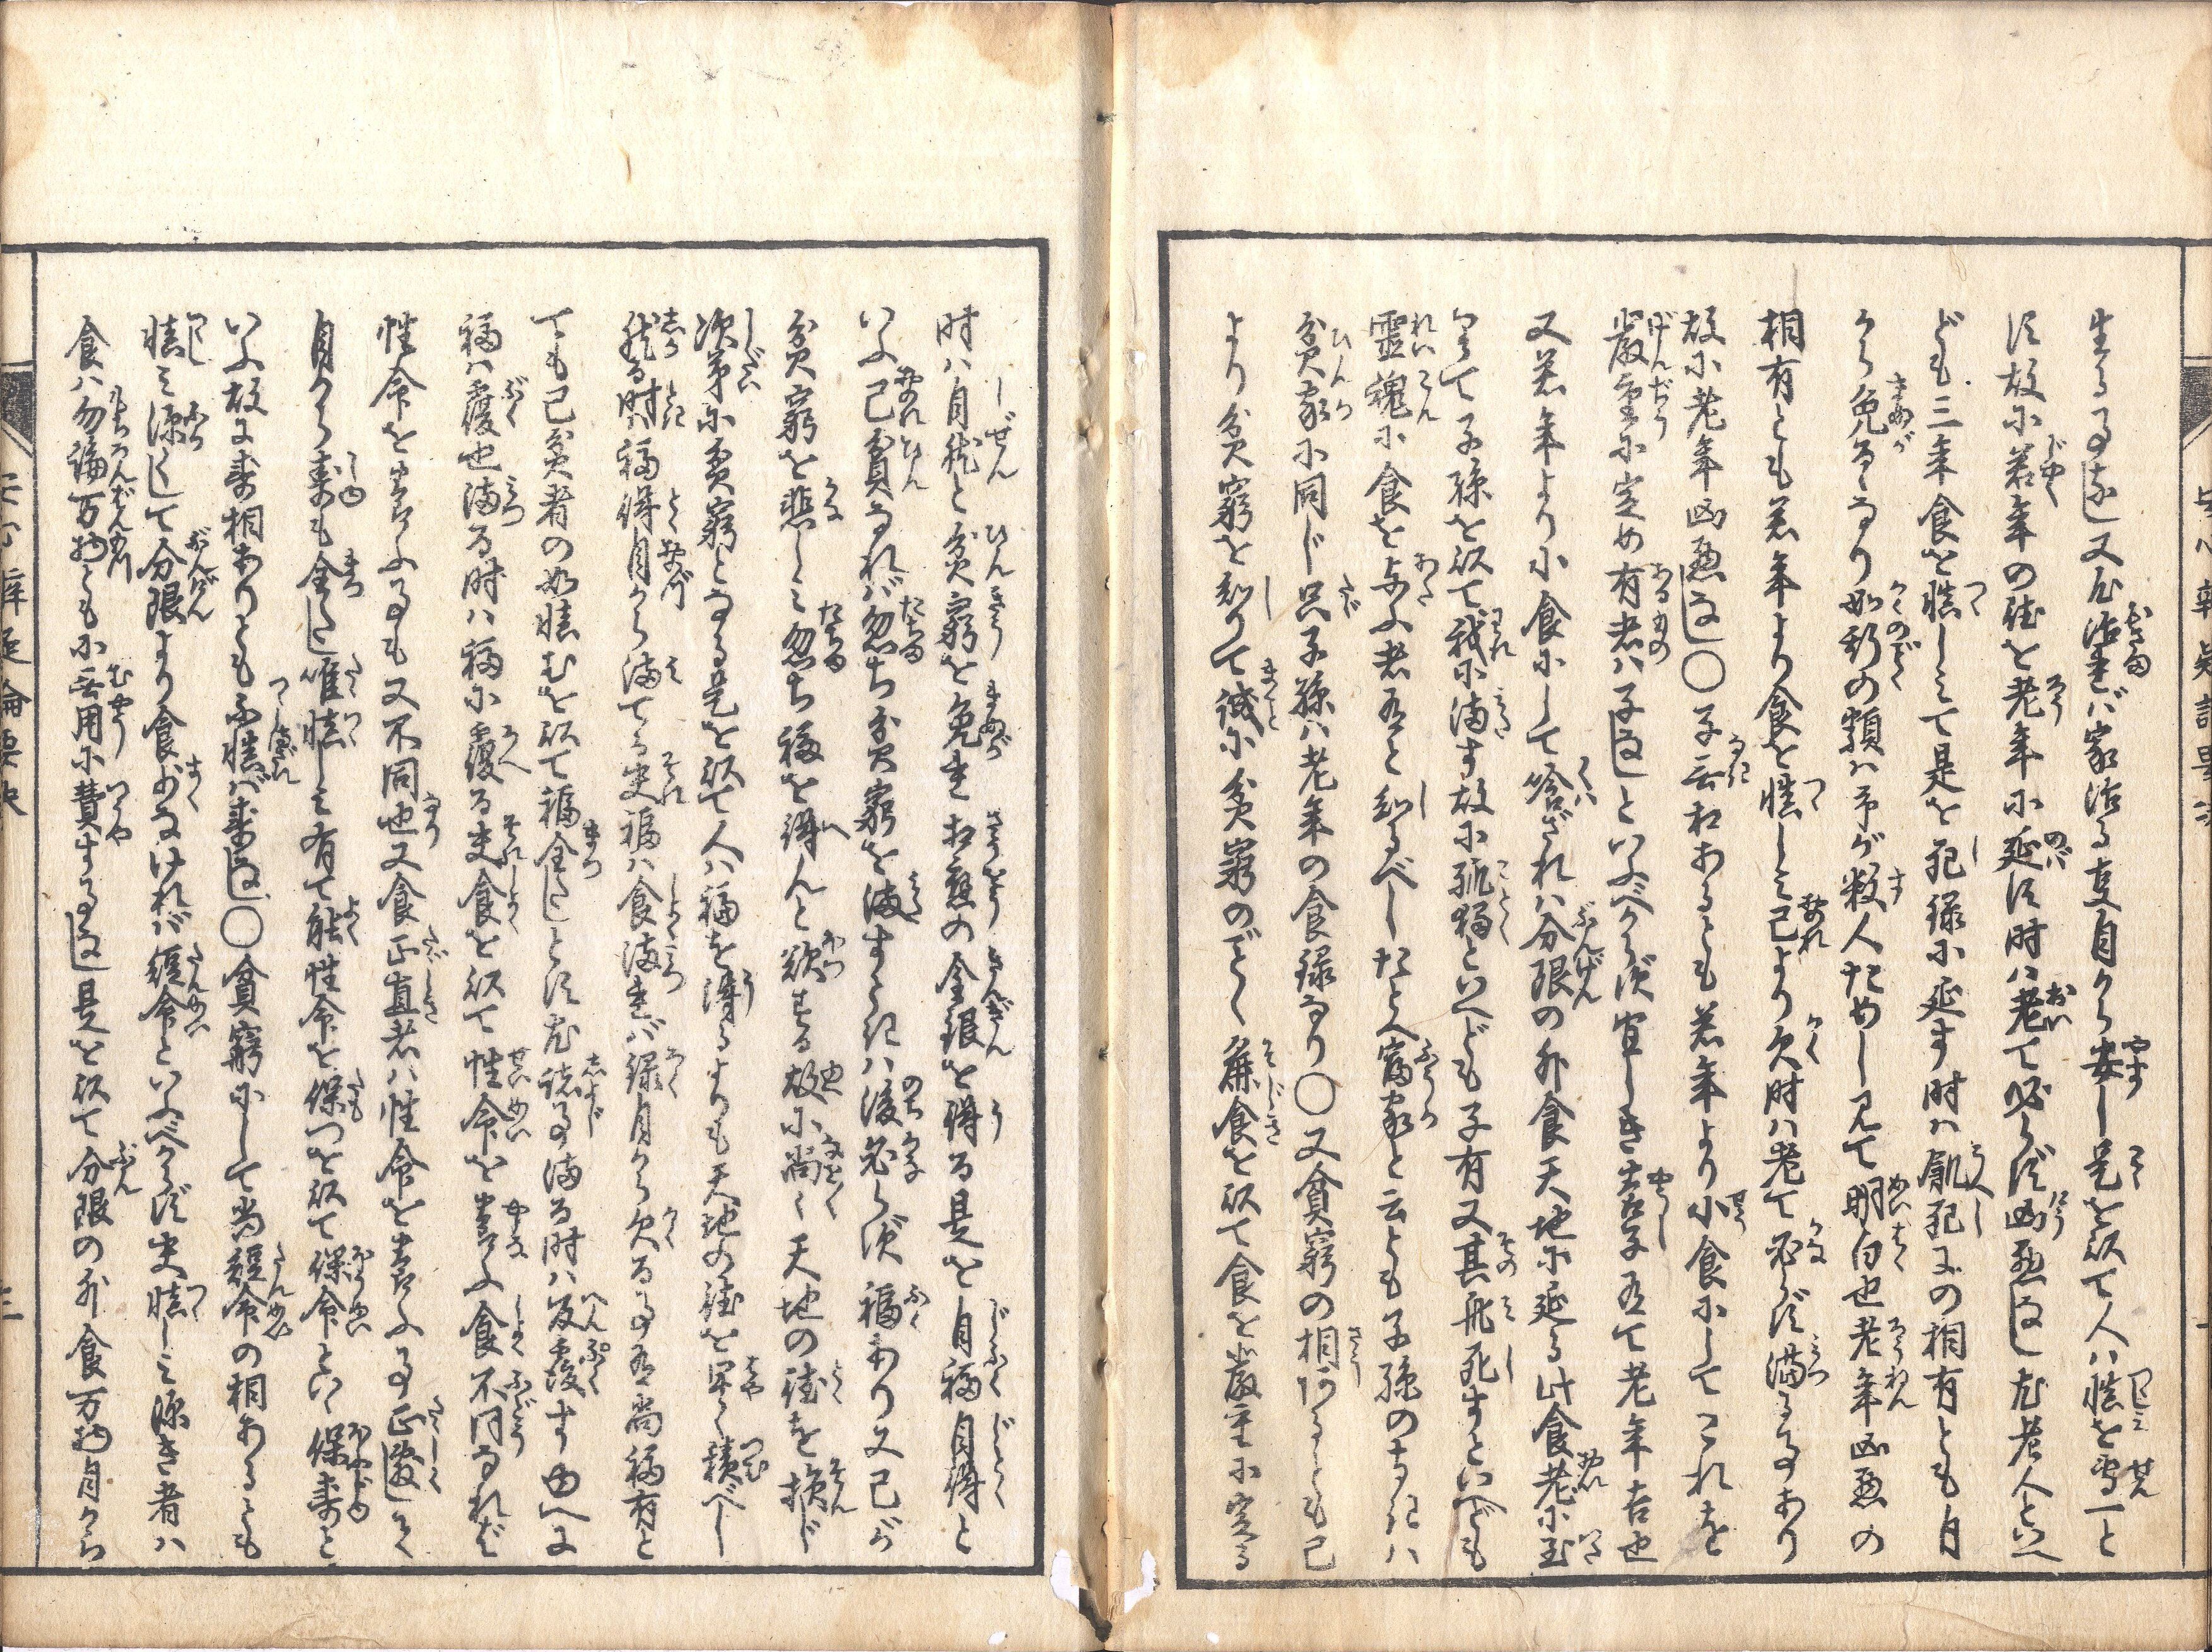 生る事なし又尤治まれば家治る隻自から安し是を以て人は慎を専一と
す故に若年の徳を老年に延す時は老て必らず凶悪なし尤老人といへ
ども三年食を慎しみて是を記録に延す時は飢死の相有とも自
から免るゝなり如形の類は予が数人ためし見て明白也老年凶悪の
相有とも若年より食を慎しみ己より欠時は老て必らず満る事あり
故に老年凶悪なし〇子無相あるとも若年より小食にしてこれを
厳重に定め有者は子なしといふべからず宜しき養子有て老年吉也
又若年より小食にして喰ざれば分限の外食天地に延る此食老に至
りて子孫を以て我に満す故に孤独といへども子有又其身死すといへども
霊魂に食を与ふ者有と知るべしたとへ富家と云とも子孫のなきは
貧家に同じ只子孫は老年の食録なり〇又貧窮の相あるとも己
より貧窮を知りて誠に貧窮のごとく麁食を以て食を厳重に定る
時は自然と貧窮を免れ相應の金銀を得る是を自福自得と
いふ己貧なれば忽ち貧窮を満すときは後必らず福あり又己が
貧窮を悲しみ忽ち福を得んと欲する故に尚々天地の徳を損じ
次第に貧窮となる是を以て人は福を得るよりも天地の徳を早く積べし
然る時は福得自から満てり夫福は食満れば禄自から欠る事有尚福有と
ても己貧者の如慎むを以て福全しとす尤諸事満る時は反覆す由へに
福は覆也満る時は福に覆る夫食を以て性命を養ふ食不同なれば
性命を養ふ事も又不同也又食正直者は性命を養ふ事正敷して
自から寿も全し唯慎しみ有て能性命を保つを以て保命とい〻保寿と
いふ故に寿相ありとも不慎ば寿なし〇貧窮にして尚短命の相あるとも
慎み深くして分限より食少なければ短命といふべからず夫慎しみ深き者は
食は勿論万物ともに無用に費する事なし是を以て分限の外食万物自から